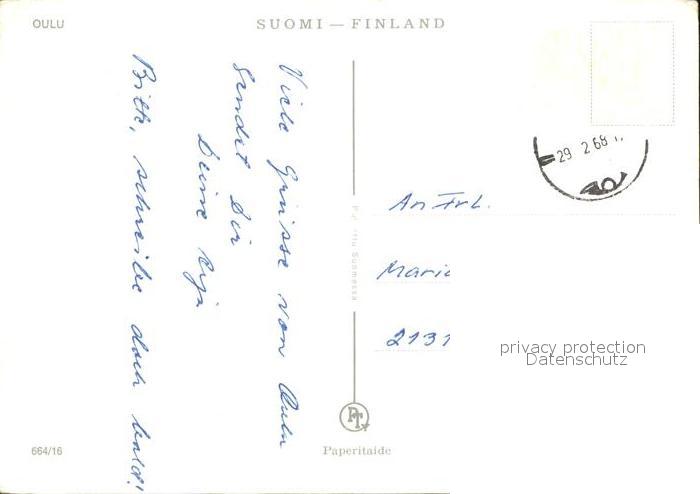 OULU
SUOMI — FINLAND
Viele Grüsse von Oulu
Sendet Dir
Deine Eija
Bitte, schreibe doch bald!
29 2.68
An Frl.
Marie
2131
Painettu Suomessa
privacy protection
Datenschutz
PT
664/16
Paperitaide